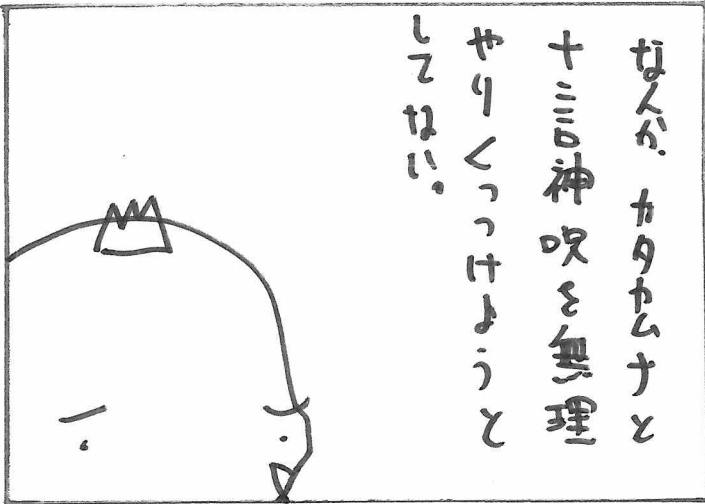 なんか、カタカムナと
十言神呪を無理
やりくっつけようと
してない。